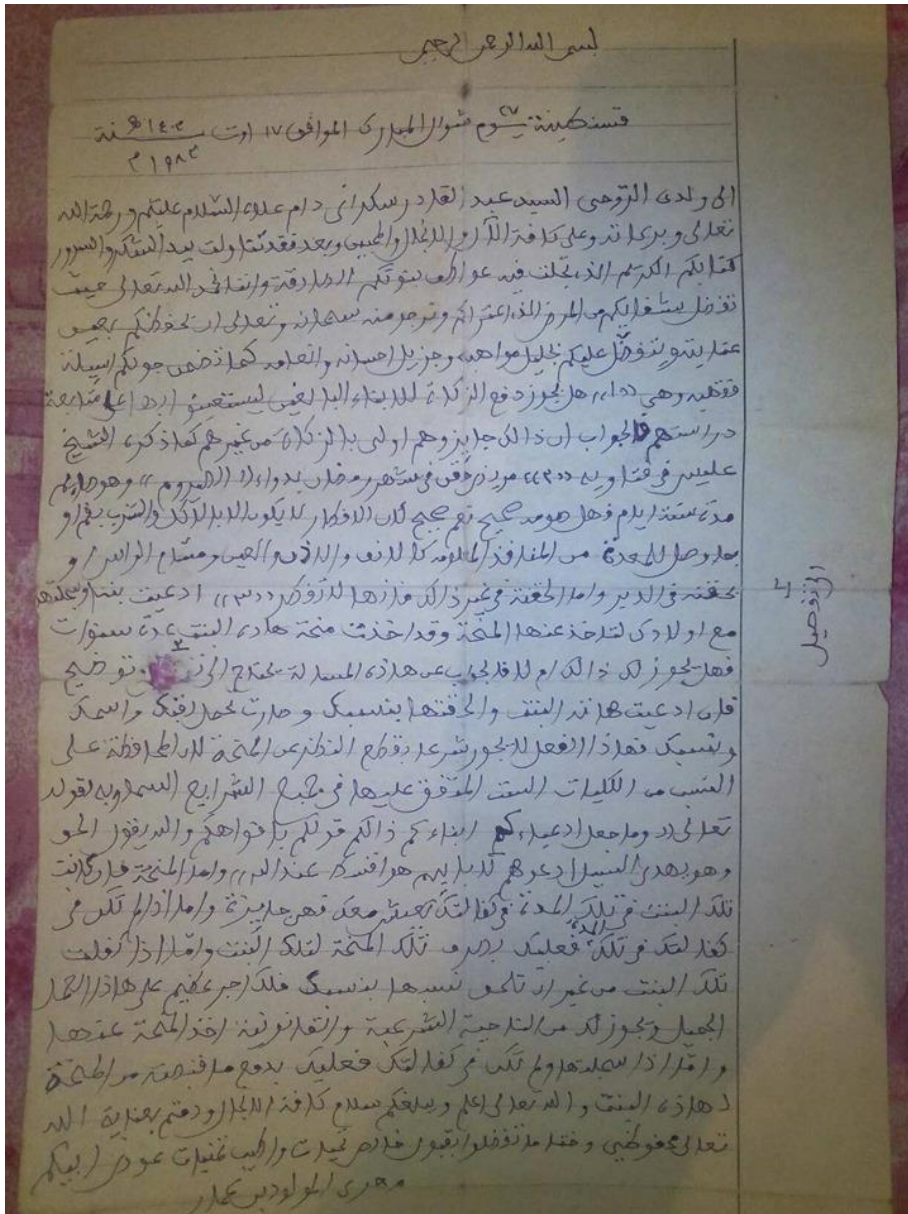 بسم الله الرحمن الرحيم
قسنطينة يوم ٢٧ شوال المبارك الموافق ١٧ اوت سنة ١٤٠٣ه
١٩٨٣م
الى ولدى الروحى السيد عبد القادر سكرانى دام علاه السلام عليكم ورحمة الله
تعالى وبركاته وعلى كافة الآل والانجال والمحبين وبعد فقد تناولت بيد الشكر والسرور
كتابكم الكريم الذى تجلت فيه عواطف بنوتكم الصادقة واننا نحمد الله تعالى حيث
تفضل بشفايكم من المرض الذى اعتراكم ونرجو منه سبحانه وتعالى ان يحفظكم بعين
عنايته ويتفضل عليكم بجليل مواهبه وجزيل احسانه وانعامه كما تضمن جوابكم اسيلة
فقهية وهى ((١)) هل يجوز دفع الزكاة للابناء البالغين ليستعينوا بها على متابعة
دراستهم فالجواب ان ذالك جايز وهم اولى بالزكاة من غيرهم كما ذكره الشيخ
عليش فى فتاويه ((٢)) مريض حقن فى شهر رمضان بدواء وهو صايم
مدة ستة ايام فهل صومه صحيح نعم صحيح لان الافطار لا يكون الا بالاكل والشرب بفم او
بما وصل للمعدة من المنافذ المعلومة كالانف والاذن والعين ومشام الراس او
بحقنة فى الدبر واما الحقنة فى غير ذالك فانها لا تفطر ((٣)) ادعيت بنتا وسجلتها
مع اولادى لتاخذ عنها المنحة وقد اخذت منحة هاذه البنت عدة سنوات
فهل يجوز لك ذالك ام لا فالجواب عن هاذه المسالة يحتاج الى ٢ وتوضيح
الى تفصيل
٢
فان ادعيت هاته البنت والحقتها بنسبك وصارت تحمل لقبك واسمك
ونسبك فهاذا الفعل لا يجوز شرعا بقطع النظر عن المنحة لان المحافظة على
النسب من الكليات الست المتفق عليها فى جميع الشرايع السماوية لقوله
تعالى ((وما جعل ادعياءكم ابناءكم ذالكم قولكم بافواهكم والله يقول الحق
وهو يهدى السبيل ادعوهم لابايهم هو اقسط عند الله)) واما المنحة فان كانت
تلك البنت فى تلك المدة فى كفالتك تعيش معك فهى جايزة واما اذا لم تكن فى
كفالتك فى تلك المدة فعليك تلك المنحة لتلك البنت واما اذا كفلت
تلك البنت من غير ان تلحق نسبها بنسبك فلك اجر عظيم على هاذا العمل
الجميل ويجوز لك من الناحية الشرعية والقانونية اخذ المنحة عنها
واما اذا سجلتها ولم تكن فى كفالتك فعليك بدفع ما قبضته من المنحة
لهاذه البنت والله تعالى اعلم ويبلغكم سلام كافة الانجال ودمتم بعناية الله
تعالى محفوظين وختاما تفضلوا بقبول خالص تحيات واطيب تمنيات عوض ابيكم
المولود بن عمار